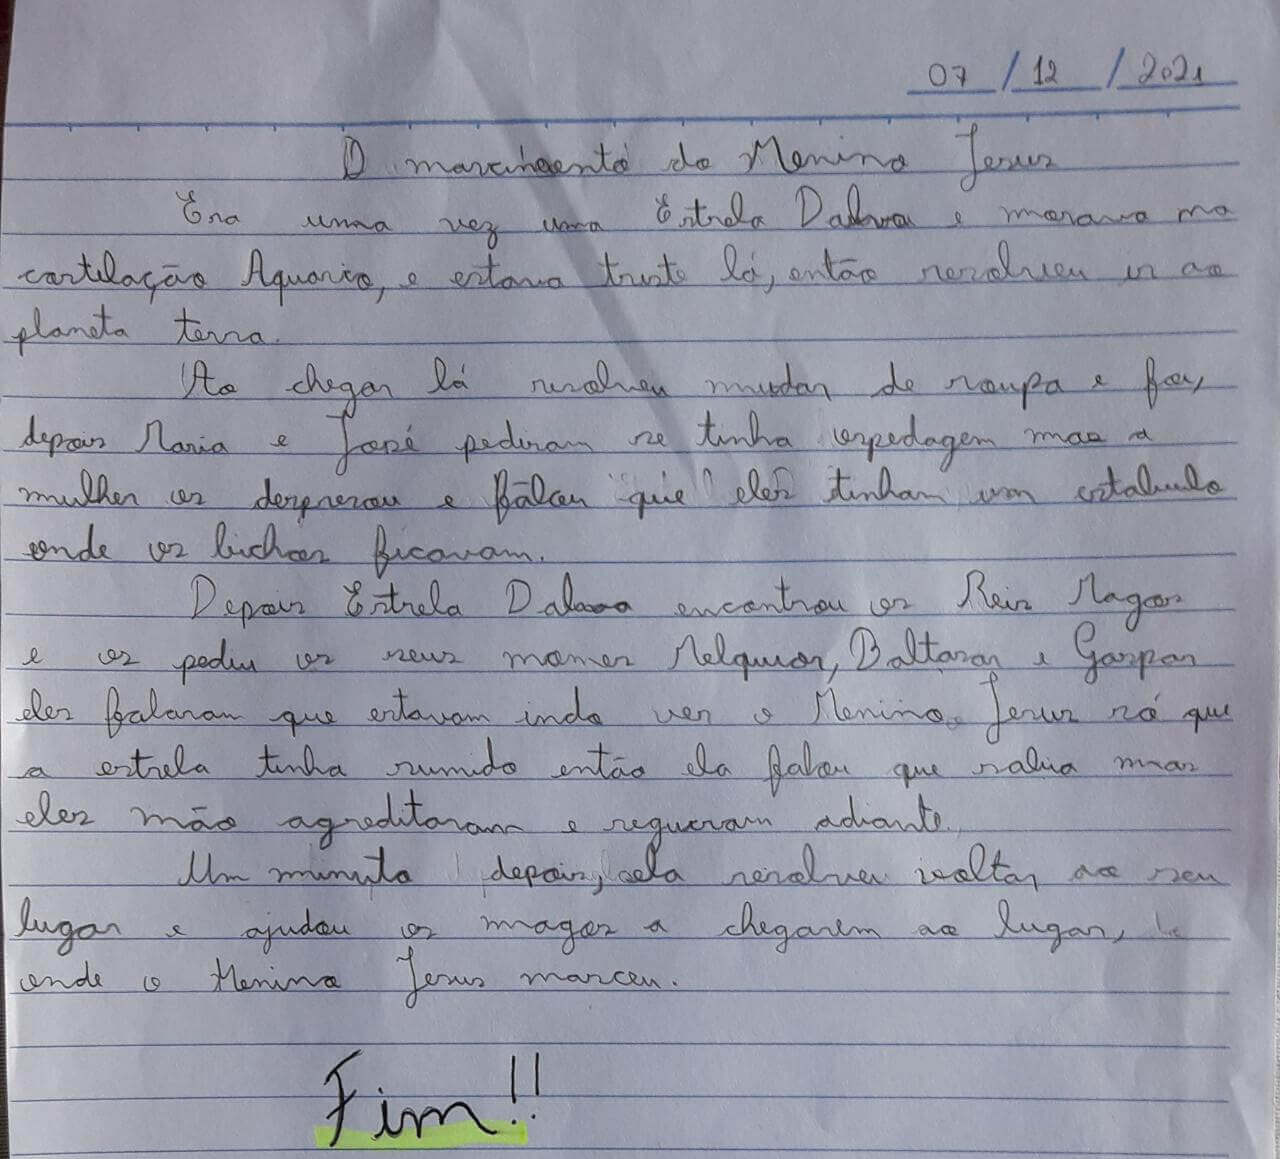 07 / 12 / 2021
O nascimento do Menino Jesus
Era uma vez uma Estrela Dalva e morava na
costelação Aquario, e estava triste lá, então resolveu ir ao
planeta terra.
Ao chegar lá resolveu mudar de roupa e foi,
depois Maria e José pediram se tinha ospedagem mas a
mulher os desprezou e falou que eles tinham um estabulo
onde os bichos ficavam.
Depois Estrela Dalva encontrou os Reis Magos
e os pediu os seus nomes Melquior, Baltazar e Gaspar
eles falaram que estavam indo ver o Menino Jesus só que
a estrela tinha sumido então ela falou que sabia mas
eles não agreditaram e seguiram adiante.
Um minuto depois, ela resolveu voltar ao seu
lugar e ajudou os magos a chegarem ao lugar,
onde o Menino Jesus nasceu.
Fim!!